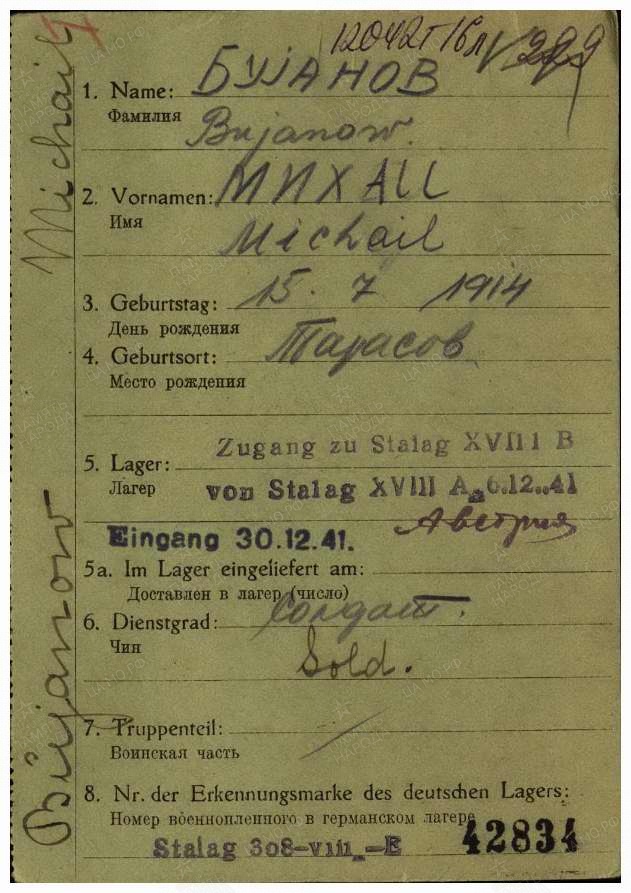 12042т/6л
1. Name: БУJАНОВ
Фамилия
Bujanow.
2. Vornamen: МИХАIL
Имя
Michail
3. Geburtstag: 15. 7 1914
День рождения
4. Geburtsort: Тарасов
Место рождения
Zugang zu Stalag XVIII B
5. Lager:
Лагер
von Stalag XVIII A 6.12.41
Австрия
Eingang 30.12.41.
5a. Im Lager eingeliefert am:
Доставлен в лагер (число)
6. Dienstgrad: Солдат.
Чин
Sold.
7. Truppenteil:
Воинская часть
8. Nr. der Erkennungsmarke des deutschen Lagers:
Номер военнопленного в германском лагере
Stalag 308-VIII-E 42834
Bujanow Michail